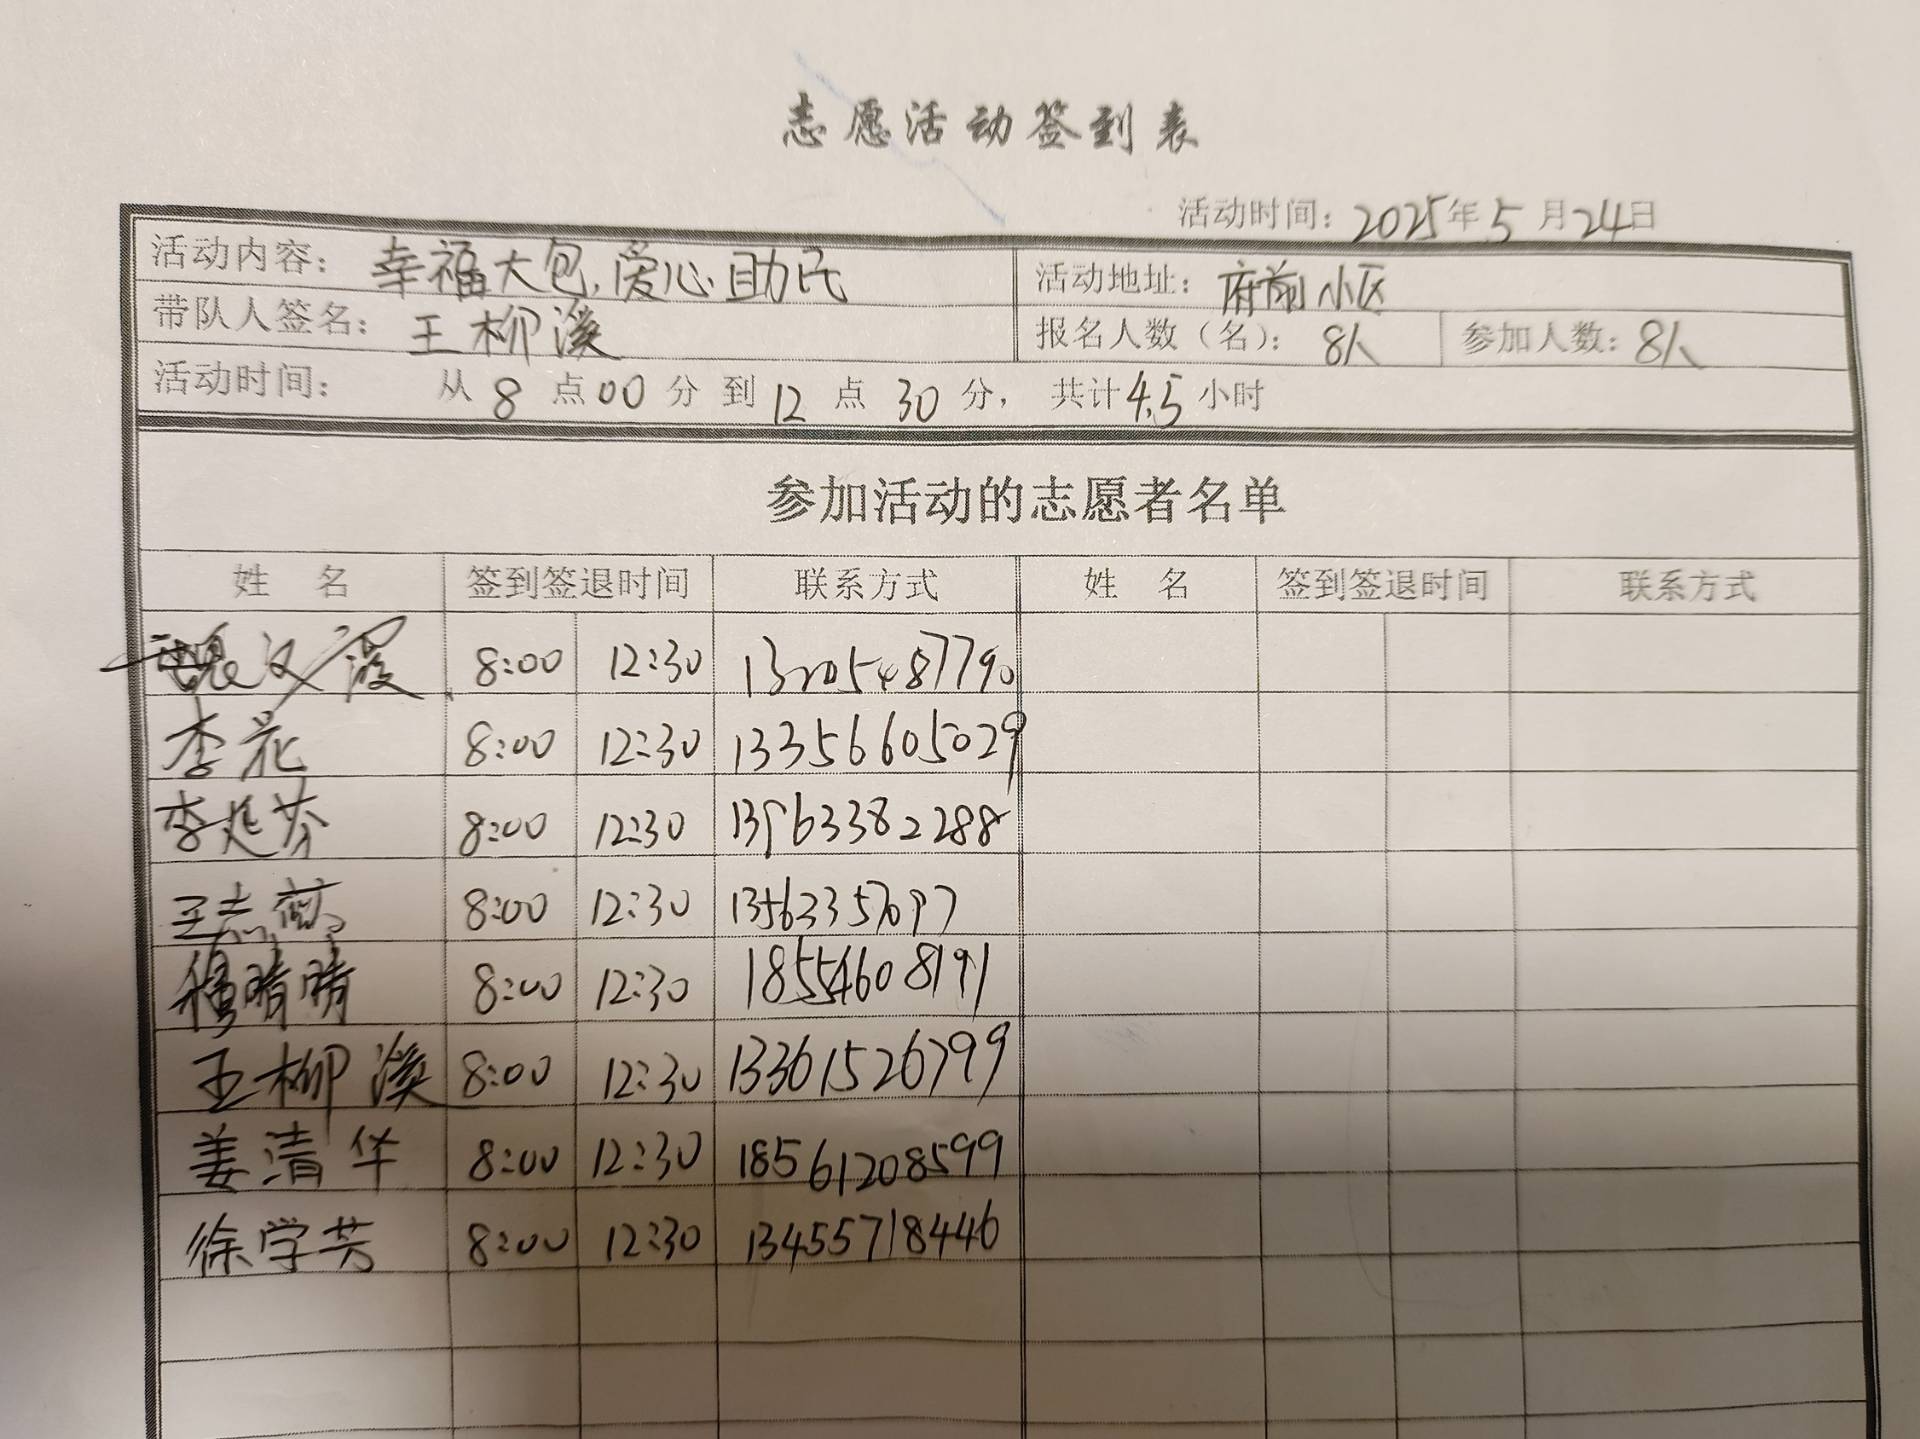 志愿活动签到表
活动时间：2025年5月24日
活动内容：幸福大包，爱心助民 活动地址：府前小区
带队人签名：王柳溪 报名人数（名）：8人 参加人数：8人
活动时间： 从8点00分到12点30分， 共计4.5小时
参加活动的志愿者名单
姓 名 签到签退时间 联系方式 姓 名 签到签退时间 联系方式
8:00 12:30 13205487790
李花 8:00 12:30 13356605029
李延芬 8:00 12:30 13963382288
王志 8:00 12:30 13563357097
穆晴晴 8:00 12:30 18554608191
王柳溪 8:00 12:30 13361526799
姜清华 8:00 12:30 18561208599
徐学芳 8:00 12:30 13455718446